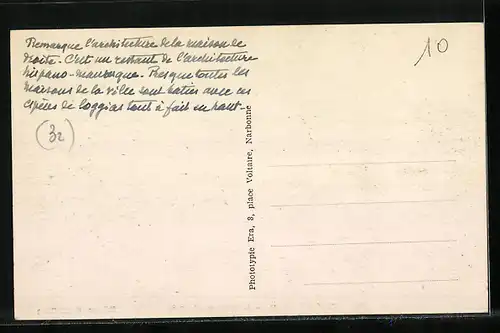 Remarque l'architecture de la maison de
droite - C'est un restant de l'architecture
hispano-mauresque. Presque toutes les
maisons de la ville sont baties avec ces
espèces de loggias tout à fait en haut-
(32)
10
Phototypie Era, 8, place Voltaire, Narbonne